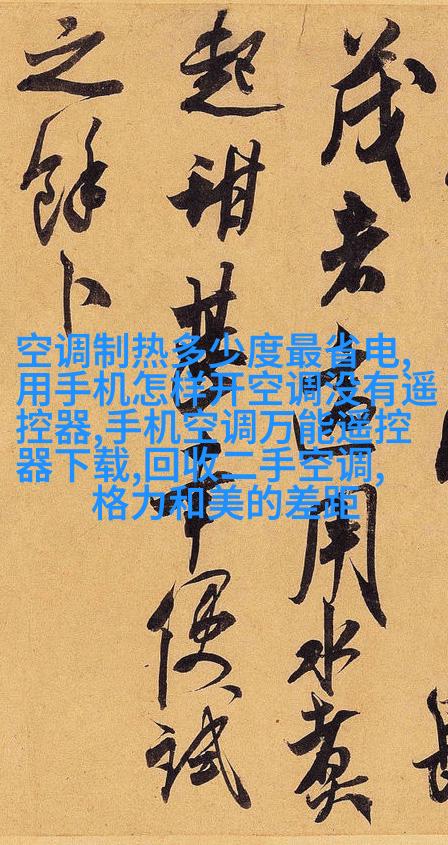 茂者用水煮
起甜其便试
之馀卜
空调制热多少度最省电,
用手机怎样开空调没有遥
控器,手机空调万能遥控
器下载,回收二手空调,
格力和美的差距